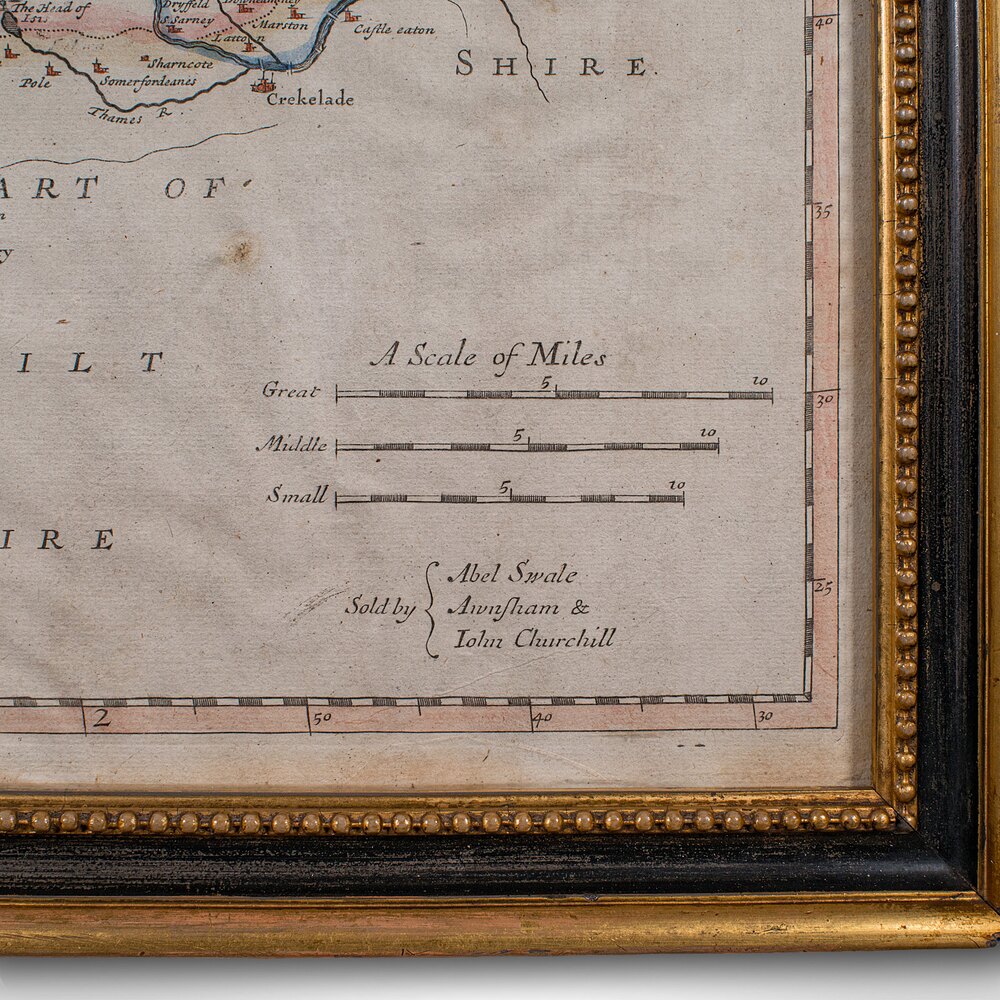 The Head of
Isis
Dryffeld
S. Sarney
Marston
Latton
Castle eaton
Sharncote
Pole
Somerfordeanes
Crekelade
Thames R.
SHIRE.
ART OF
ILT
IRE
A Scale of Miles
Great 5 10
Middle 5 10
Small 5 10
Sold by
Abel Swale
Awnsham &
Iohn Churchill
40
35
30
25
2 50 40 30